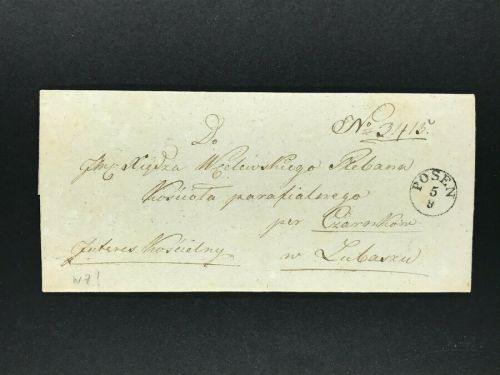 No 3413.
Do
Jmć Xiędza Welewskiego Plebana
Kościoła parafialnego
per Czarnków
w Lubaszu
Interes Kościelny
POSEN
5
9
W7!